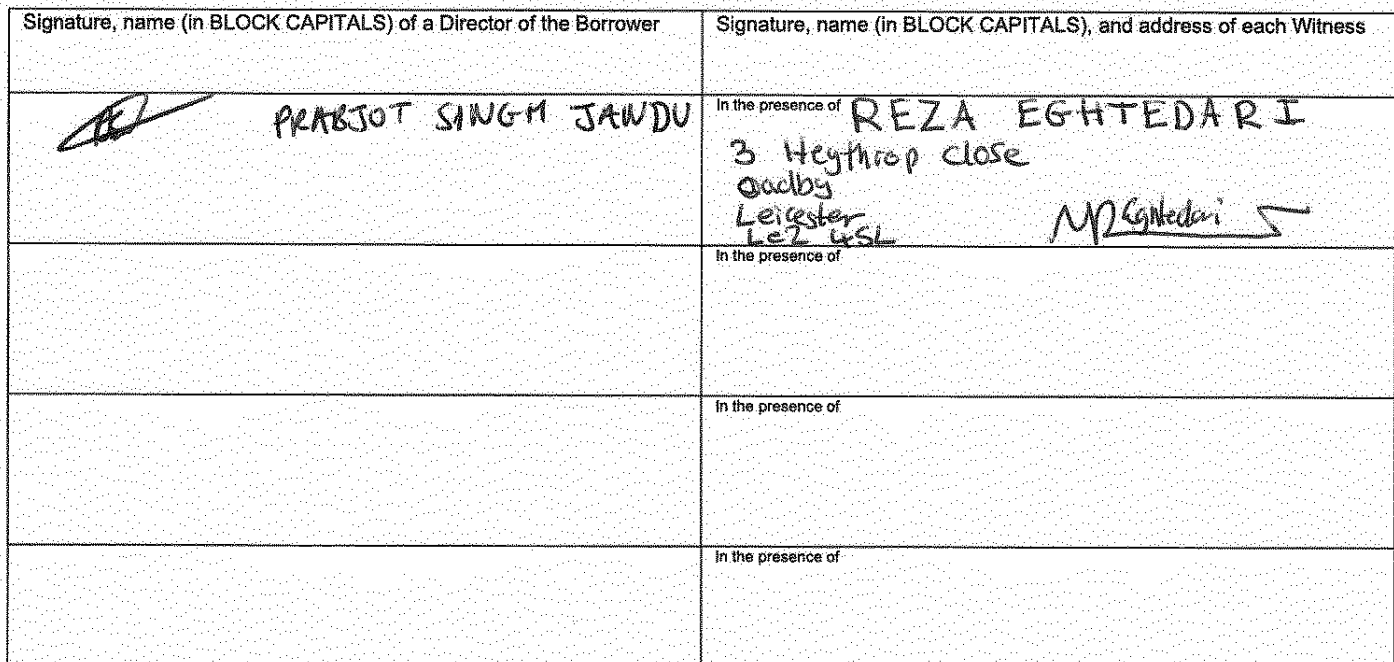 Signature, name (in BLOCK CAPITALS) of a Director of the Borrower
Signature, name (in BLOCK CAPITALS), and address of each Witness
PRABJOT SINGH JANDU
In the presence of REZA EGHTEDARI
3 Heythrop close
Oadby
Leicester
Le2 4SL
Eghtedari
In the presence of
In the presence of
In the presence of